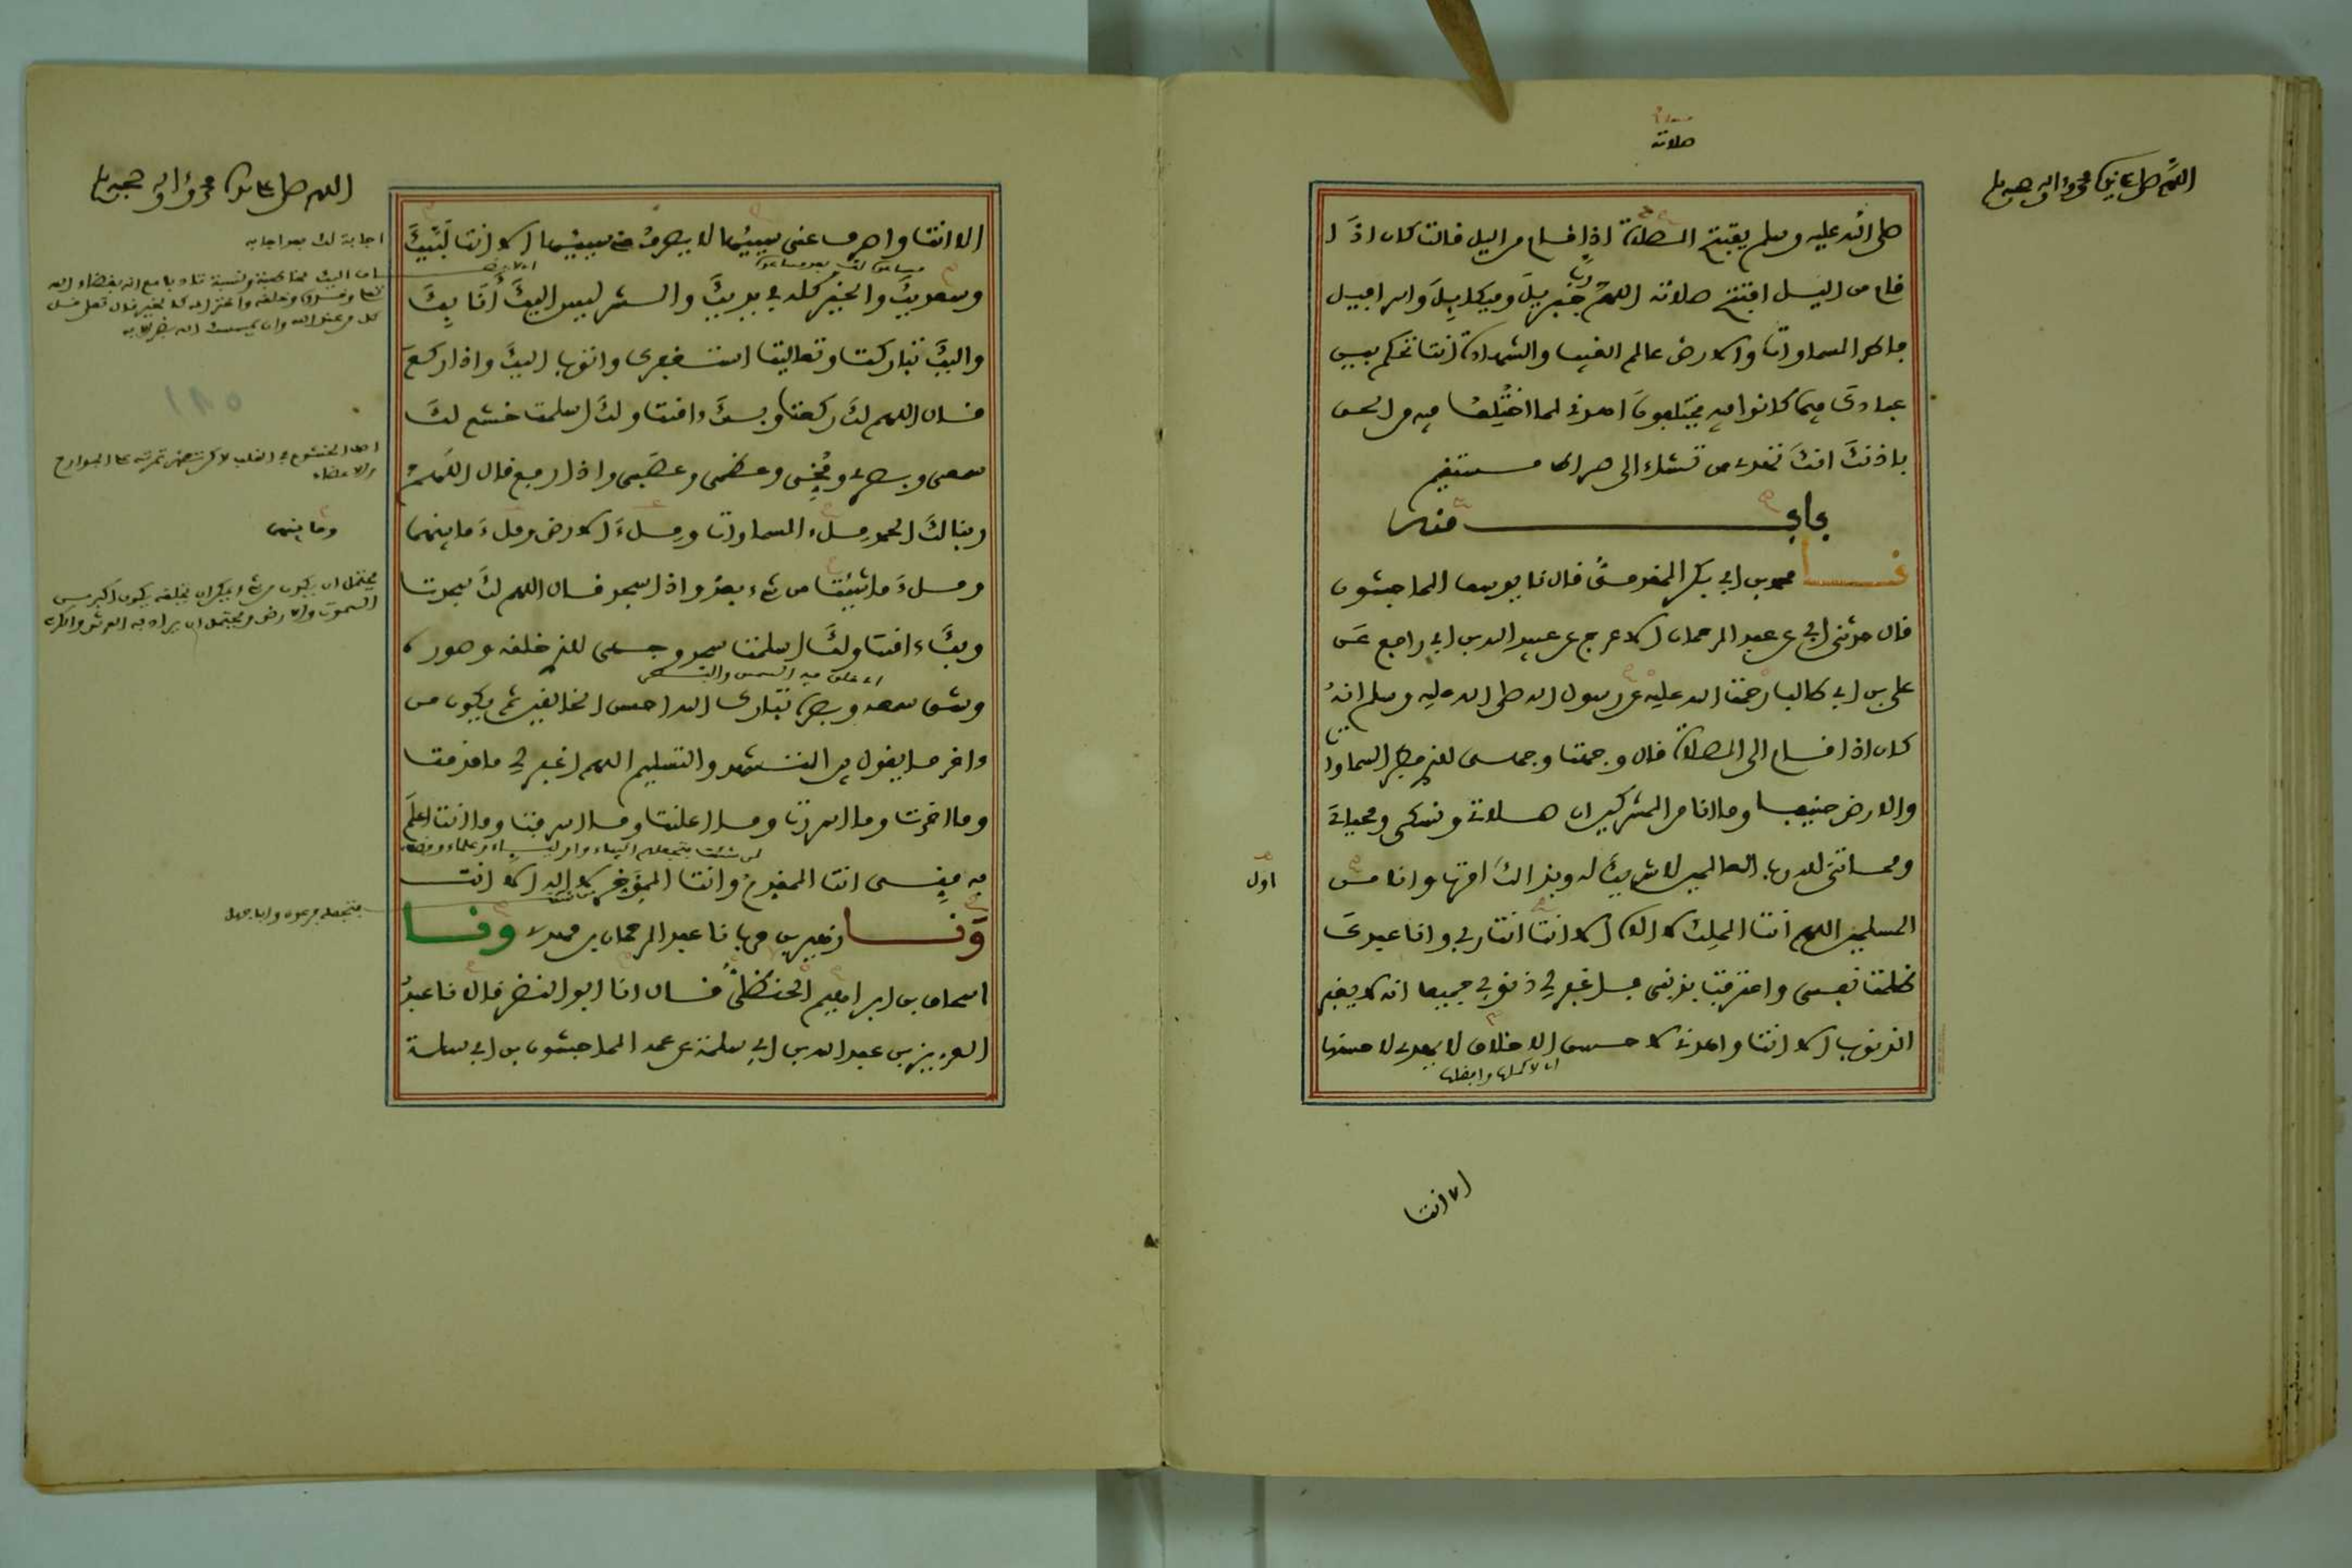 اللهم صل على سيدنا محمد وءاله وصحبه وسلم
صلاته
صلى الله عليه وسلم يفتتح الصلاة اذا قام من اليل قالت كان اذا
قام من اليل افتتح صلاته اللهم رب جبريل وميكاءيل واسرافيل
فاطر السماوات والارض عالم الغيب والشهادة انت تحكم بين
عبادك فيما كانوا فيه يختلفون اهدني لما اختلف فيه من الحق
باذنك انك تهدي من تشاء الى صراط مستقيم
باب منه
نا محمد بن ابي بكر المقدمي قال نا يوسف الماجشون
قال حدثني ابي عن عبد الرحمان الاعرج عن عبيد الله بن ابي رافع عن
علي بن ابي طالب رحمت الله عليه عن رسول الله صلى الله عليه وسلم انه
كان اذا قام الى الصلاة قال وجهت وجهي للذي فطر السماوات
والارض حنيفا وما انا من المشركين ان صلاتي ونسكي ومحياي
ومماتي لله رب العالمين لا شريك له وبذالك امرت وانا من
اول
المسلمين اللهم انت الملك لا اله الا انت انت ربي وانا عبدك
ظلمت نفسي واعترفت بذنبي فاغفر لي ذنوبي جميعا انه لا يغفر
الذنوب الا انت واهدني لاحسن الاخلاق لا يهدي لاحسنها
اي لاكملها وافضلها
الا انت
اللهم صل على سيدنا محمد وءاله وصحبه وسلم
الا انت واصرف عني سيئها لا يصرف عني سيئها الا انت لبيك
اجابة لك بعد اجابة
مساعدة لك بعد مساعدة
وسعديك والخير كله في يديك والشر ليس اليك انا بك
واليك تباركت وتعاليت استغفرك واتوب اليك واذا ركع
قال اللهم لك ركعت وبك ءامنت ولك اسلمت خشع لك
سمعي وبصري ومخي وعظمي وعصبي واذا رفع قال اللهم
ربنا لك الحمد ملء السماوات وملء الارض وملء ما بينهما
وما بينهما
وملء ما شئت من شيء بعد واذا سجد قال اللهم لك سجدت
وبك ءامنت ولك اسلمت سجد وجهي للذي خلقه وصوره
وشق سمعه وبصره تبارك الله احسن الخالقين ثم يكون من
ءاخر ما يقول بين التشهد والتسليم اللهم اغفر لي ما قدمت
وما اخرت وما اسررت وما اعلنت وما اسرفت وما انت اعلم
به مني انت المقدم وانت المؤخر لا اله الا انت
ونا زهير بن حرب نا عبد الرحمان بن مهدي ونا
اسحاق بن ابراهيم الحنظلي قال انا ابو النضر قال نا عبد
العزيز بن عبد الله بن ابي سلمة عن عمه الماجشون بن ابي سلمة